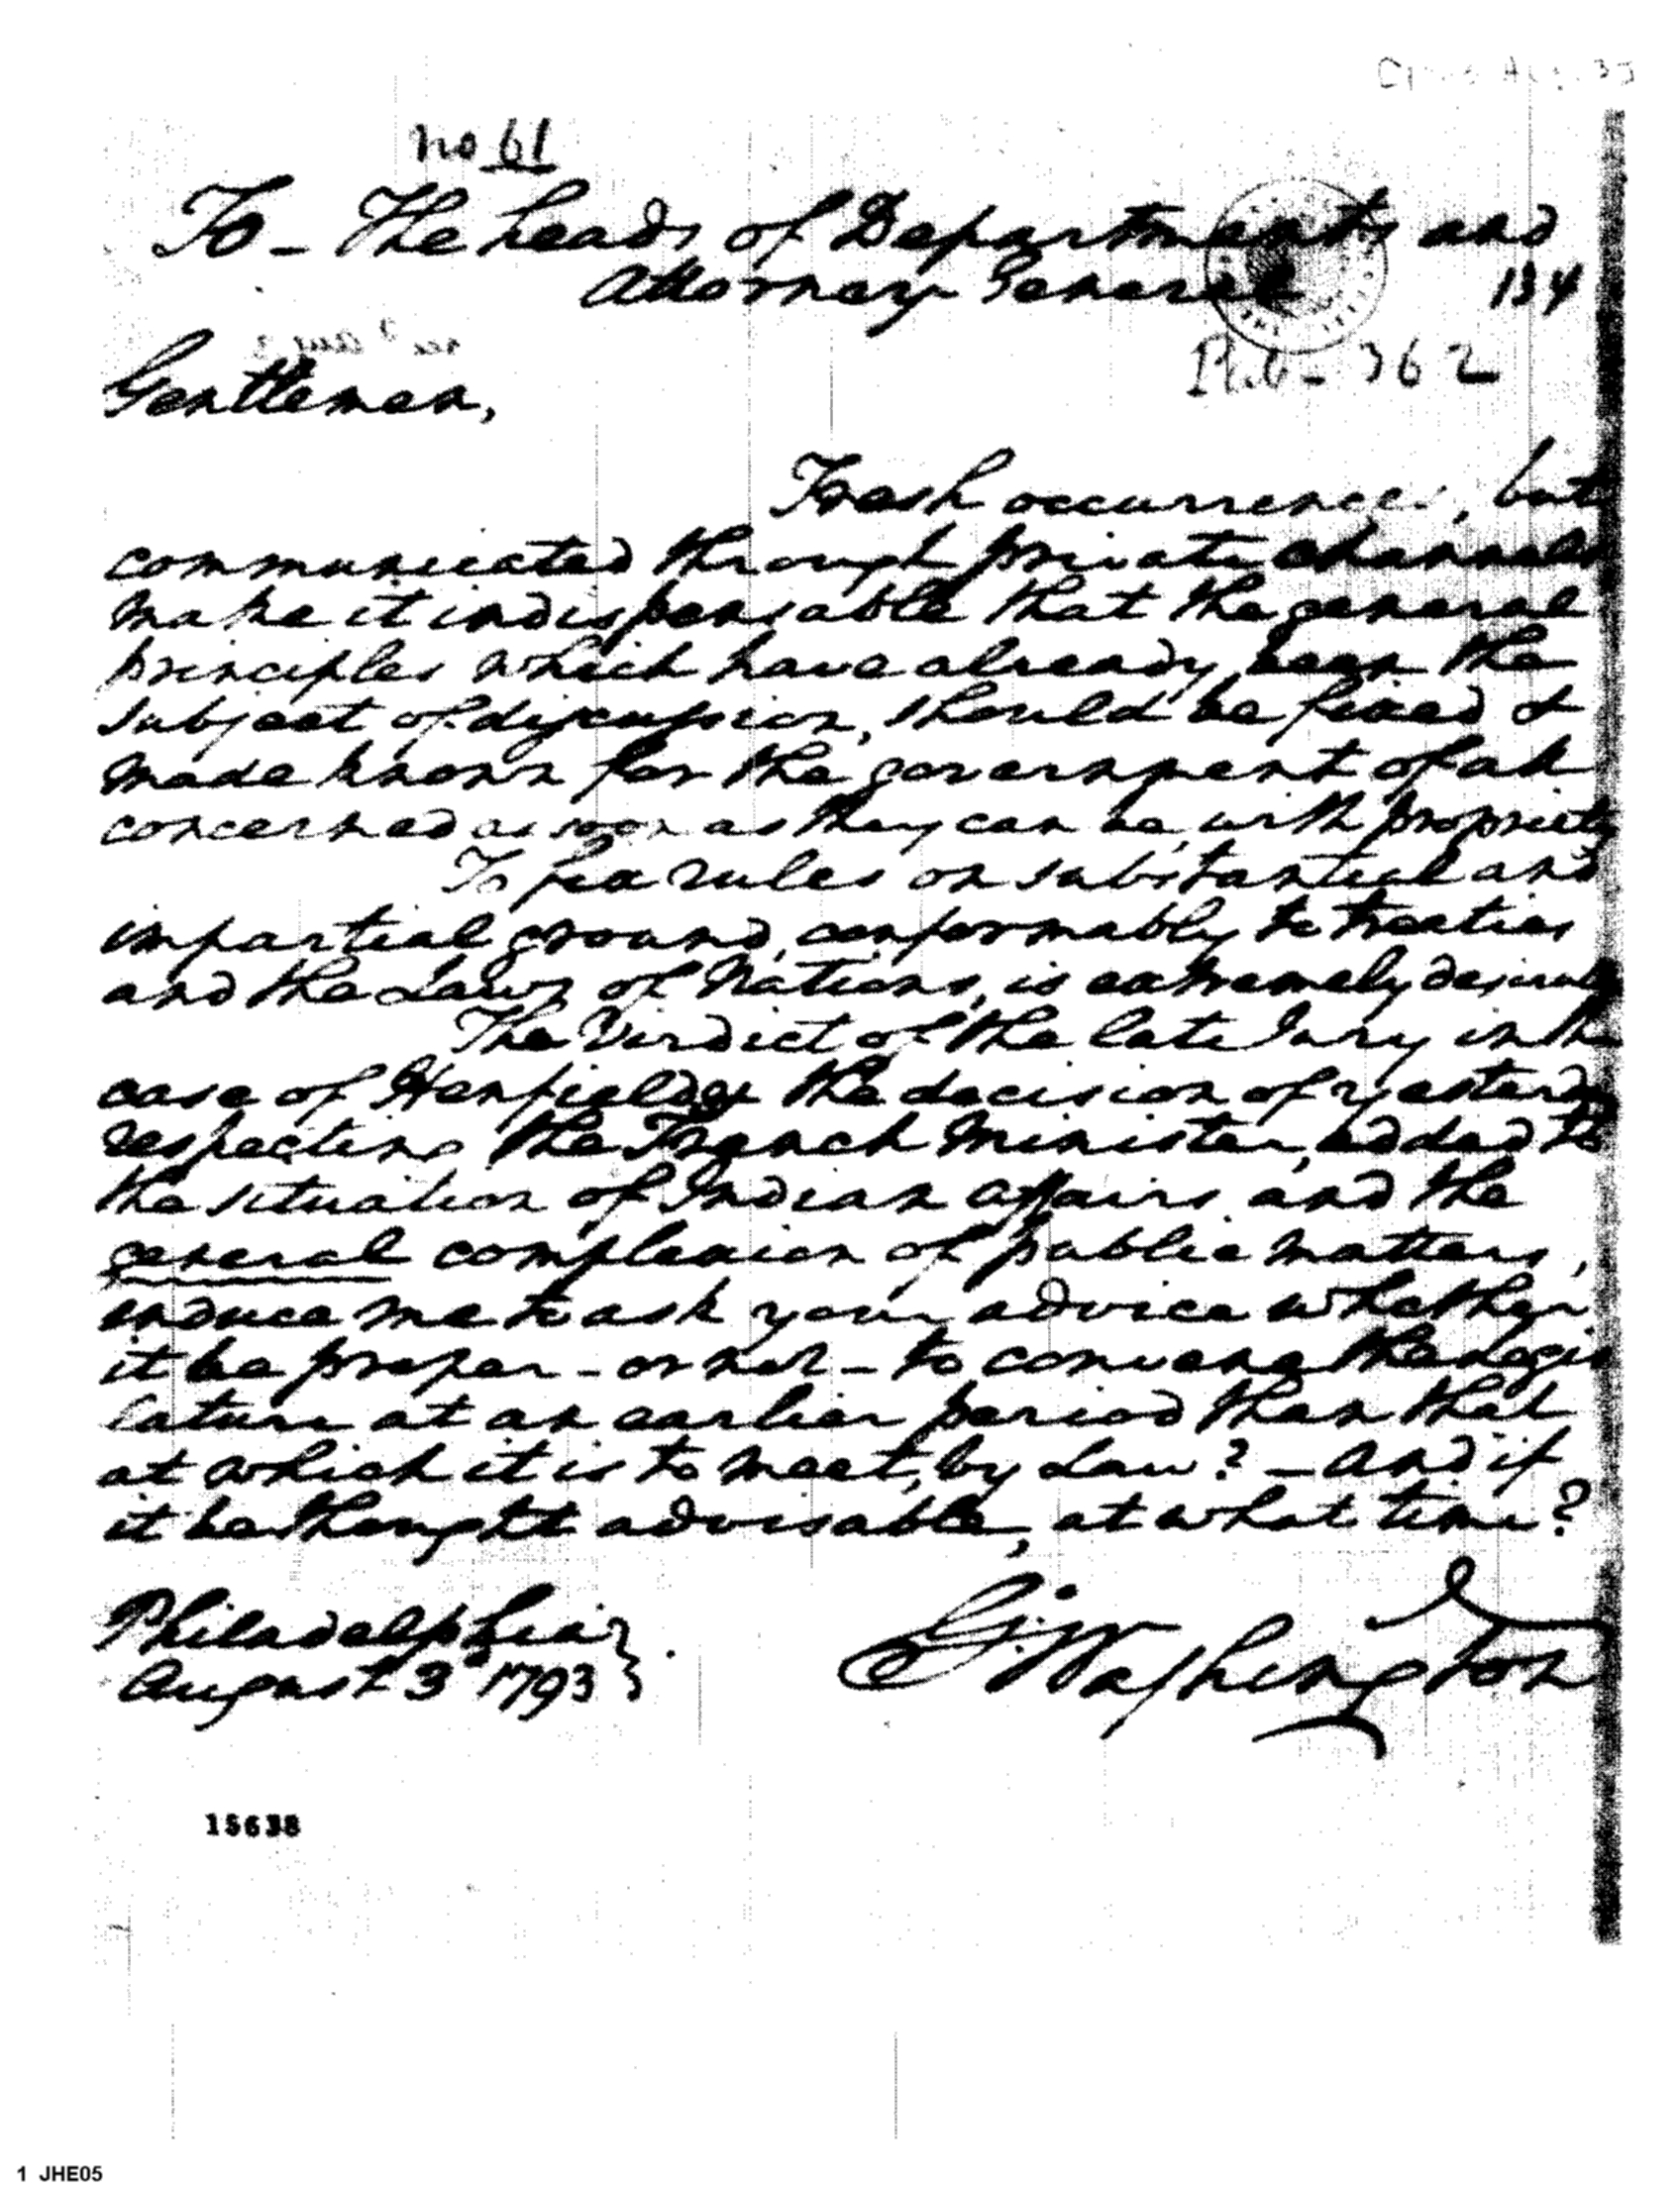 no 61
To - The heads of Departments and
Attorney General
134
362
Gentlemen,
Fresh occurrences, but
communicated through private channels
make it indispensable that the general
principles which have already been the
subject of discussion, should be fixed &
made known for the government of all
concerned as soon as they can be, with propriety
To fix rules on substantial and
impartial ground, conformably to treaties
and the Laws of Nations, is extremely desirable
The Verdict of the late Jury in the
case of Henfield, & the decision of yesterday
respecting the French Minister, added to
the situation of Indian Affairs and the
general complexion of public matters,
induce me to ask your advice whether
it be proper - or not - to convene the Legis
lature at an earlier period than that
at which it is to meet, by Law? - And if
it be thought advisable, at what time?
Philadelphia
August 3d 1793
G:Washington
15638
1 JHE05